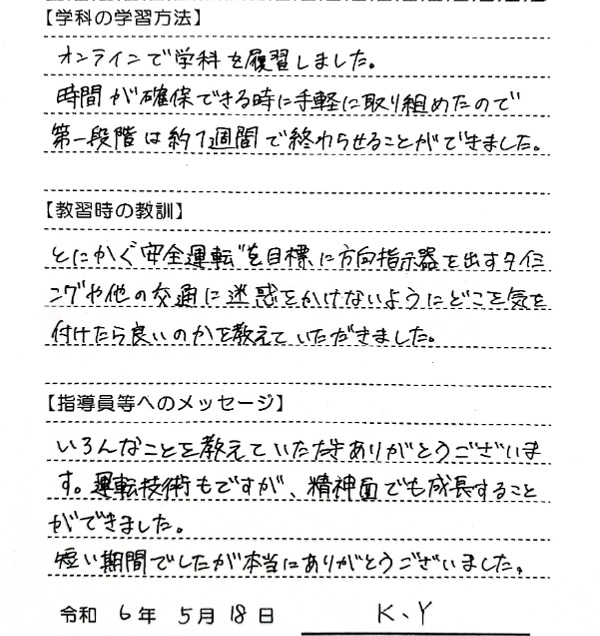 【学科の学習方法】
オンラインで学科を履習しました。
時間が確保できる時に手軽に取り組めたので
第一段階は約1週間で終わらせることができました。
【教習時の教訓】
とにかく"安全運転"を目標に方向指示器を出すタイミ
ングや他の交通に迷惑をかけないようにどこを気を
付けたら良いのかを教えていただきました。
【指導員等へのメッセージ】
いろんなことを教えていただきありがとうございま
す。運転技術もですが、精神面でも成長すること
ができました。
短い期間でしたが本当にありがとうございました。
令和 6年 5月 18日 K、Y